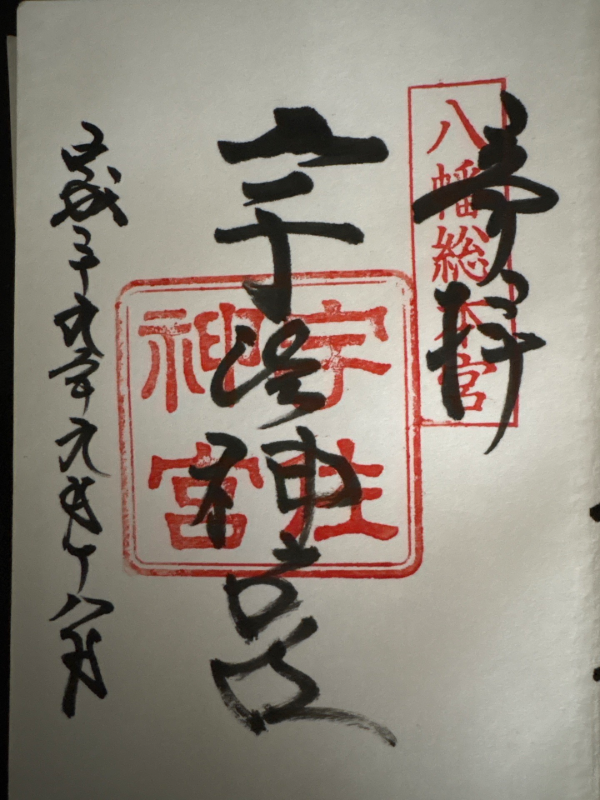 奉拝
八幡総本宮
宇佐神宮
宇佐
神宮
平成二十九年九月十八日